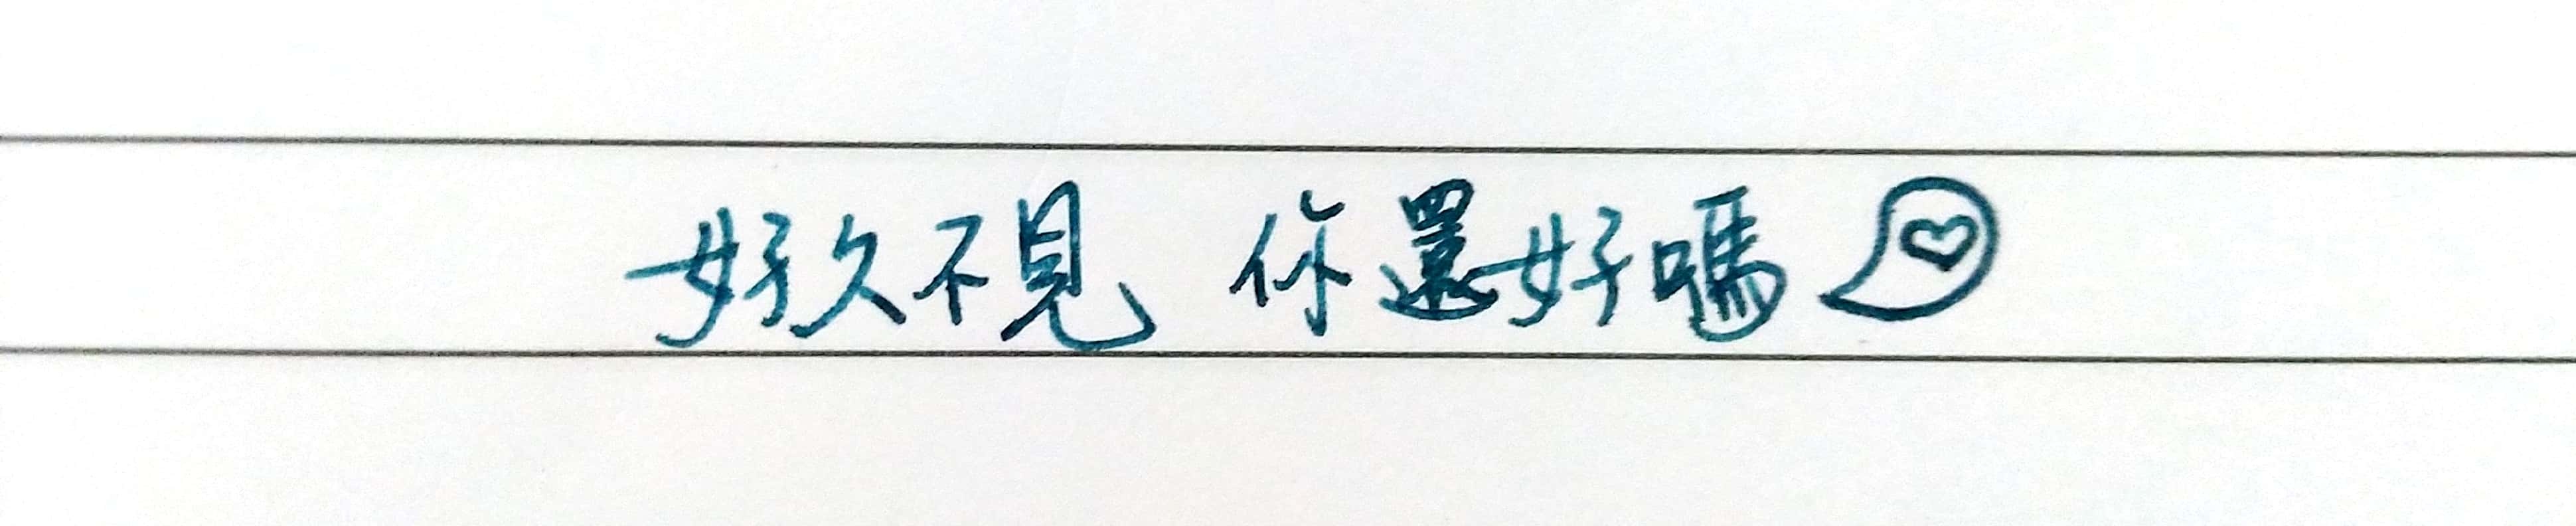 好久不見 你還好嗎